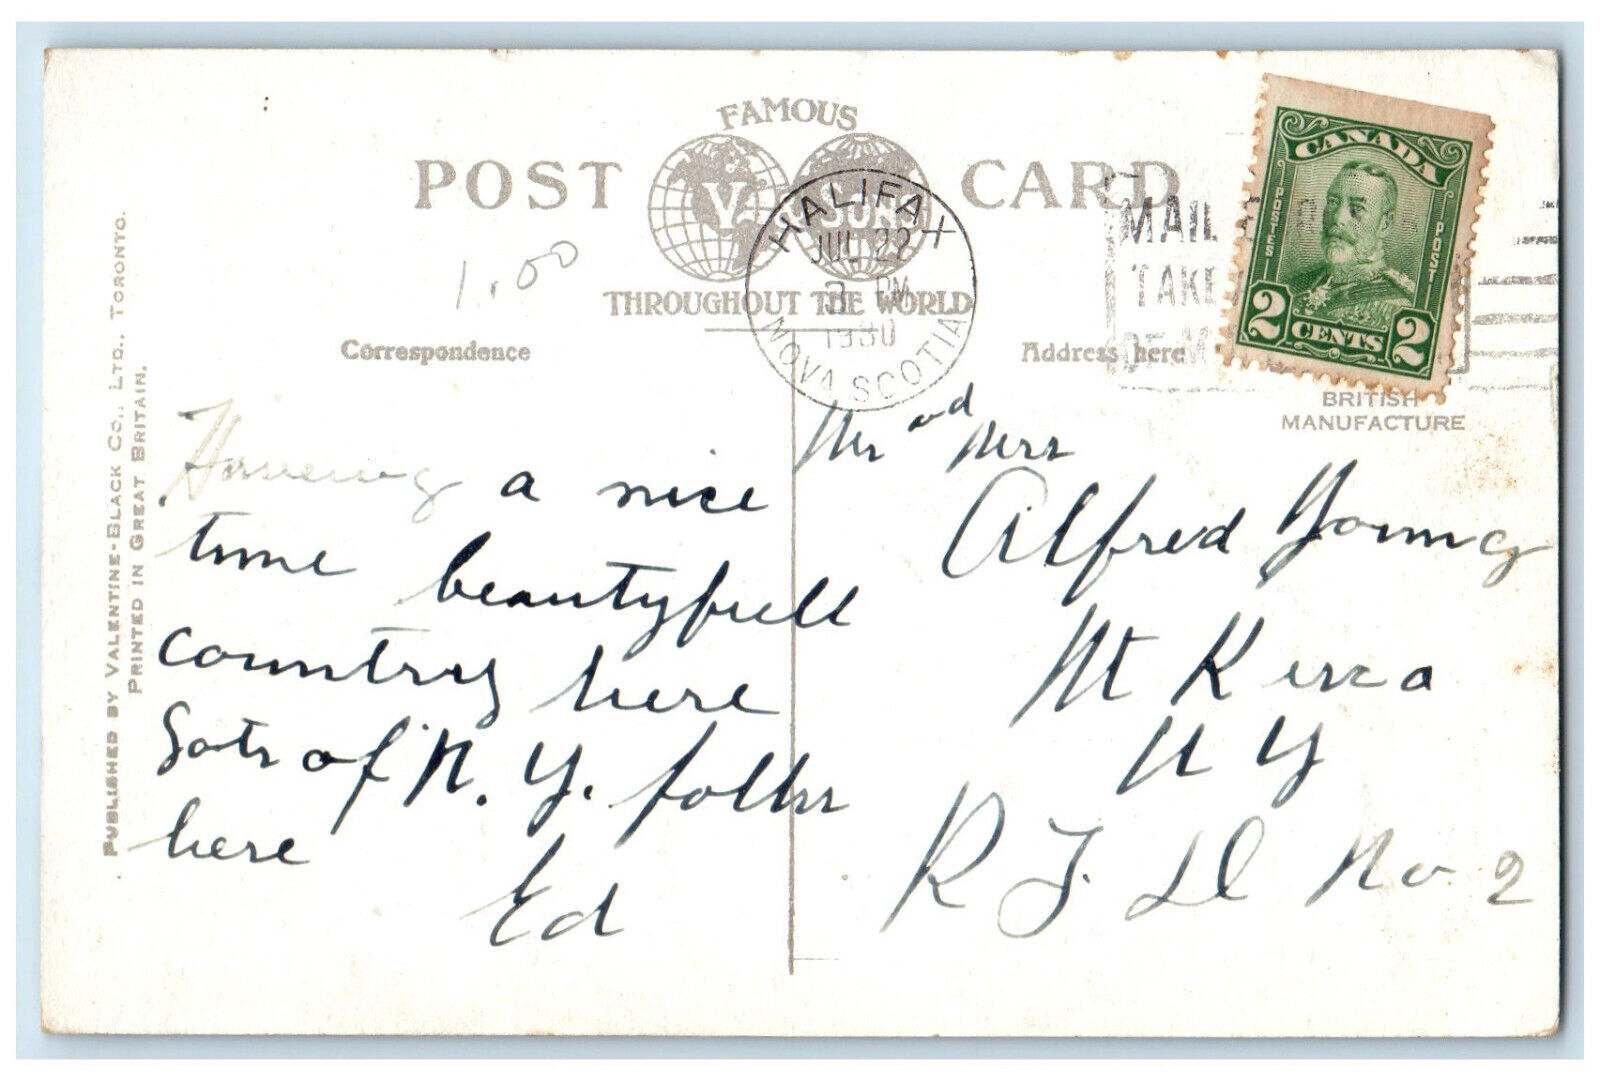 FAMOUS
POST CARD
V & SONS
THROUGHOUT THE WORLD
HALIFAX
JUL 22
3 PM
1930
NOVA SCOTIA
MAIL
TAKE
CANADA
POSTES POST
2 CENTS 2
1.00
Correspondence
Address here
BRITISH
MANUFACTURE
PUBLISHED BY VALENTINE-BLACK CO., LTD., TORONTO.
PRINTED IN GREAT BRITAIN.
Haveing a nice
time beautyfull
country here
Lots of N. Y. folks
here
Ed
Mr and Mrs
Alfred Young
Mt Kisco
N Y
R F D No 2